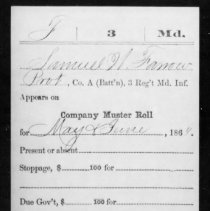 F 3 Md.
Samuel W. Farrow
Pvt., Co. A (Batt'n), 3 Reg't Md. Inf.
Appears on
Company Muster Roll
for May & June, 186
Present or absent
Stoppage, $ 100 for
Due Gov't, $ 100 for